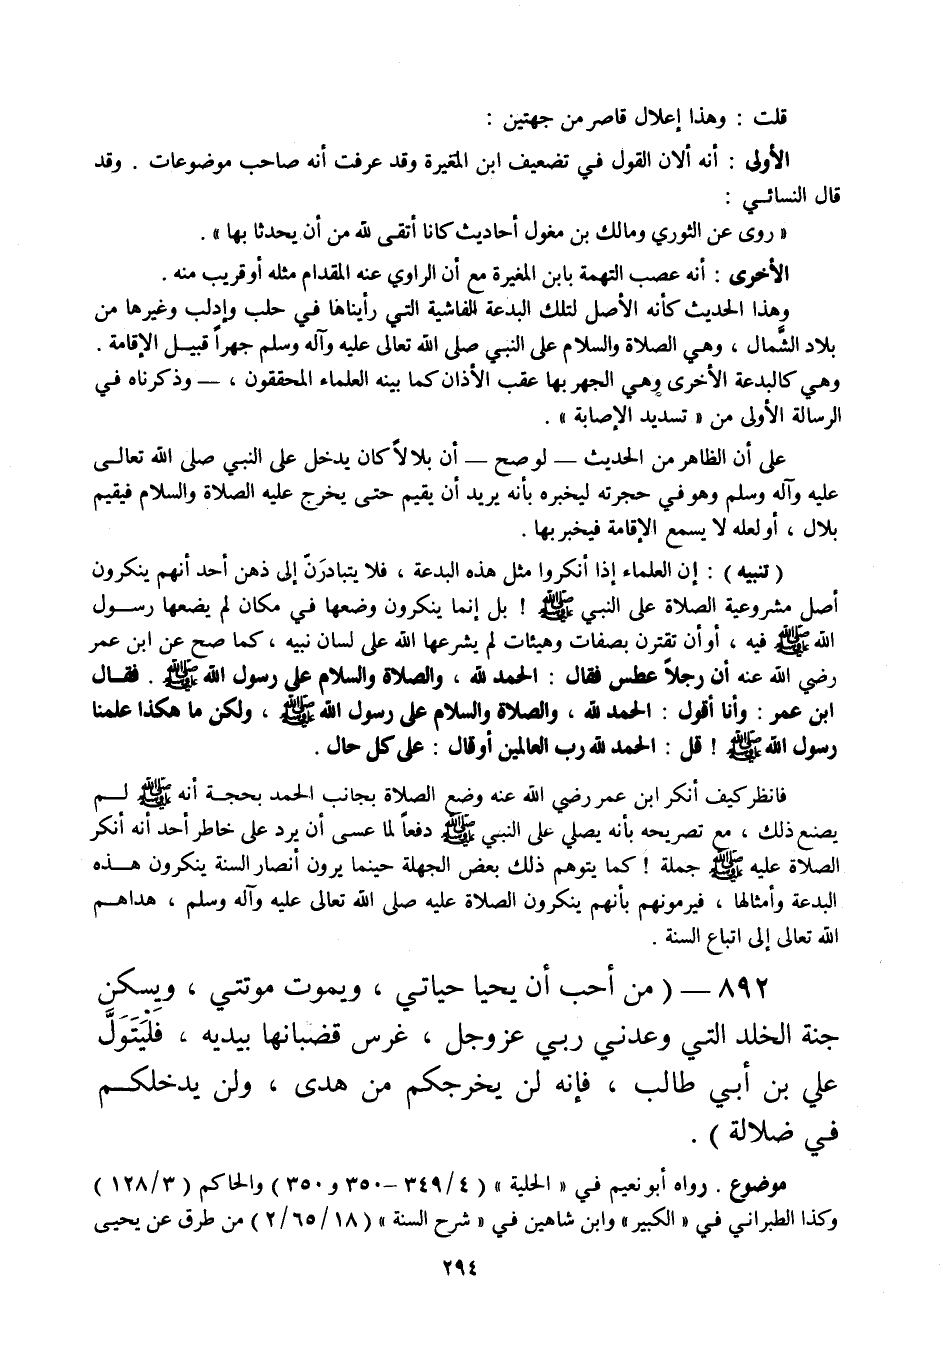 قلت : وهذا إعلال قاصر من جهتين :
الأولى : أنه ألان القول في تضعيف ابن المغيرة وقد عرفت أنه صاحب موضوعات . وقد
قال النسائي :
« روى عن الثوري ومالك بن مغول أحاديث كانا أتقى لله من أن يحدثا بها » .
الأخرى : أنه عصب التهمة بابن المغيرة مع أن الراوي عنه المقدام مثله أو قريب منه .
وهذا الحديث كأنه الأصل لتلك البدعة الفاشية التي رأيناها في حلب وإدلب وغيرها من
بلاد الشَّمال ، وهي الصلاة والسلام على النبي صلى الله تعالى عليه وآله وسلم جهراً قبيل الإقامة .
وهي كالبدعة الأخرى وهي الجهر بها عقب الأذان كما بينه العلماء المحققون ، — وذكرناه في
الرسالة الأولى من « تسديد الإصابة » .
على أن الظاهر من الحديث — لو صح — أن بلالاً كان يدخل على النبي صلى الله تعالى
عليه وآله وسلم وهو في حجرته ليخبره بأنه يريد أن يقيم حتى يخرج عليه الصلاة والسلام فيقيم
بلال ، أو لعله لا يسمع الإقامة فيخبر بها .
( تنبيه ) : إن العلماء إذا أنكروا مثل هذه البدعة ، فلا يتبادرَنّ إلى ذهن أحد أنهم ينكرون
أصل مشروعية الصلاة على النبي ﷺ ! بل إنما ينكرون وضعها في مكان لم يضعها رسول
الله ﷺ فيه ، أو أن تقترن بصفات وهيئات لم يشرعها الله على لسان نبيه ، كما صح عن ابن عمر
رضي الله عنه أن رجلاً عطس فقال : الحمد لله ، والصلاة والسلام على رسول الله ﷺ . فقال
ابن عمر : وأنا أقول : الحمد لله ، والصلاة والسلام على رسول الله ﷺ ، ولكن ما هكذا علمنا
رسول الله ﷺ ! قل : الحمد لله رب العالمين أو قال : على كل حال .
فانظر كيف أنكر ابن عمر رضي الله عنه وضع الصلاة بجانب الحمد بحجة أنه ﷺ لم
يصنع ذلك ، مع تصريحه بأنه يصلي على النبي ﷺ دفعاً لما عسى أن يرد على خاطر أحد أنه أنكر
الصلاة عليه ﷺ جملة ! كما يتوهم ذلك بعض الجهلة حينما يرون أنصار السنة ينكرون هذه
البدعة وأمثالها ، فيرمونهم بأنهم ينكرون الصلاة عليه صلى الله تعالى عليه وآله وسلم ، هداهم
الله تعالى إلى اتباع السنة .
٨٩٢ — ( من أحب أن يحيا حياتي ، ويموت موتتي ، ويسكن
جنة الخلد التي وعدني ربي عز وجل ، غرس قضبانها بيديه ، فلْيَتَوَلَّ
علي بن أبي طالب ، فإنه لن يخرجكم من هدى ، ولن يدخلكم
في ضلالة ) .
موضوع . رواه أبو نعيم في « الحلية » ( ٤/ ٣٤٩ -٣٥٠ و ٣٥٠ ) والحاكم ( ٣/ ١٢٨ )
وكذا الطبراني في « الكبير » وابن شاهين في « شرح السنة » ( ١٨/ ٦٥/ ٢ ) من طرق عن يحيى
٢٩٤